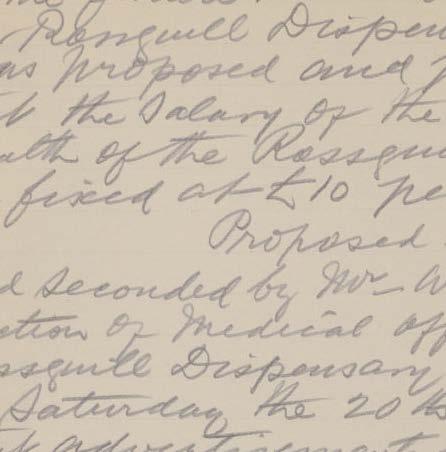 Rosguill Dispen
as proposed and p
t the Salary of the
alth of the Rossgui
fixed at £10 pe
Proposed
d seconded by Mr. W
ction of Medical Off
ssguill Dispensary
Saturday the 20th
advertisement